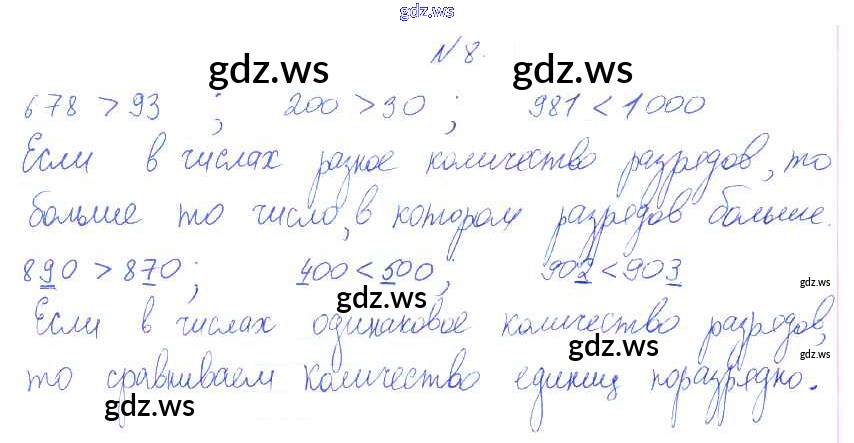 gdz.ws
N 8.
gdz.ws gdz.ws
678 > 93 ; 200 > 30 ; 981 < 1000
Если в числах разное количество разрядов, то
больше то число, в котором разрядов больше.
890 > 870 ; 400 < 500 ; 902 < 903
gdz.ws
gdz.ws
Если в числах одинаковое количество разрядов,
gdz.ws
gdz.ws
то сравниваем количество единиц поразрядно.
gdz.ws